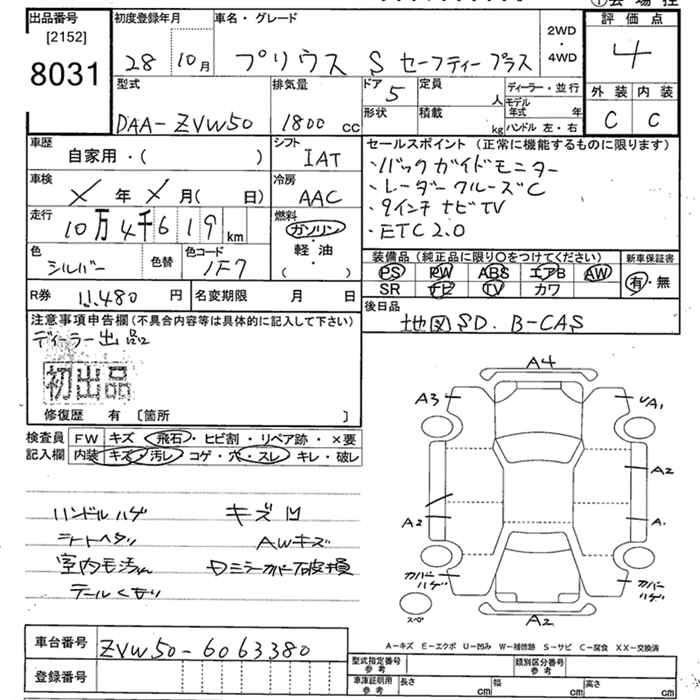 ①会場控
出品番号 初度登録年月 車名・グレード 評価点
[2152]
8031 28 10月 プリウス S セーフティープラス 2WD・4WD 4
型式 排気量 ドア 5 定員 人 ディーラー・並行 外装 内装
DAA-ZVW50 1800 cc 形状 積載 kg モデル年式 年 ハンドル 左・右 C C
車歴 シフト セールスポイント (正常に機能するものに限ります)
自家用・( ) IAT ・バックガイドモニター
車検 冷房 ・レーダークルーズC
X 年 X 月( 日) AAC ・9インチナビTV
走行 燃料 ・ETC 2.0
10万4千619 km ガソリン・
軽油・
( )
色 色替 色コード 装備品 (純正品に限り○をつけてください) 新車保証書
シルバー 1F7 PS PW ABS エアB AW 有・無
SR ナビ TV カワ
R券 11,480 円 名変期限 月 日 後日品
地図SD. B-CAS
注意事項申告欄 (不具合内容等は具体的に記入して下さい)
ディーラー出品
初出品
修復歴 有 〔箇所 〕
検査員 FW キズ・飛石・ヒビ割・リペア跡・×要
記入欄 内装 キズ・汚レ・コゲ・穴・スレ・キレ・破レ
ハンドルハゲ キズ凹
シートヘタリ AWキズ
室内モ汚れ Dミラーカバー破損
テールくもり
A4
A3 A1
A2
A2 A
カバーハゲ カバーハゲ
スペ A2
車台番号 ZVW50-6063380
A-キズ E-エクボ U-凹み W-補修跡 S-サビ C-腐食 XX-交換済
登録番号 型式指定番号 参考 類別区分番号 参考
車庫証明用 参考 長さ cm 幅 cm 高さ cm